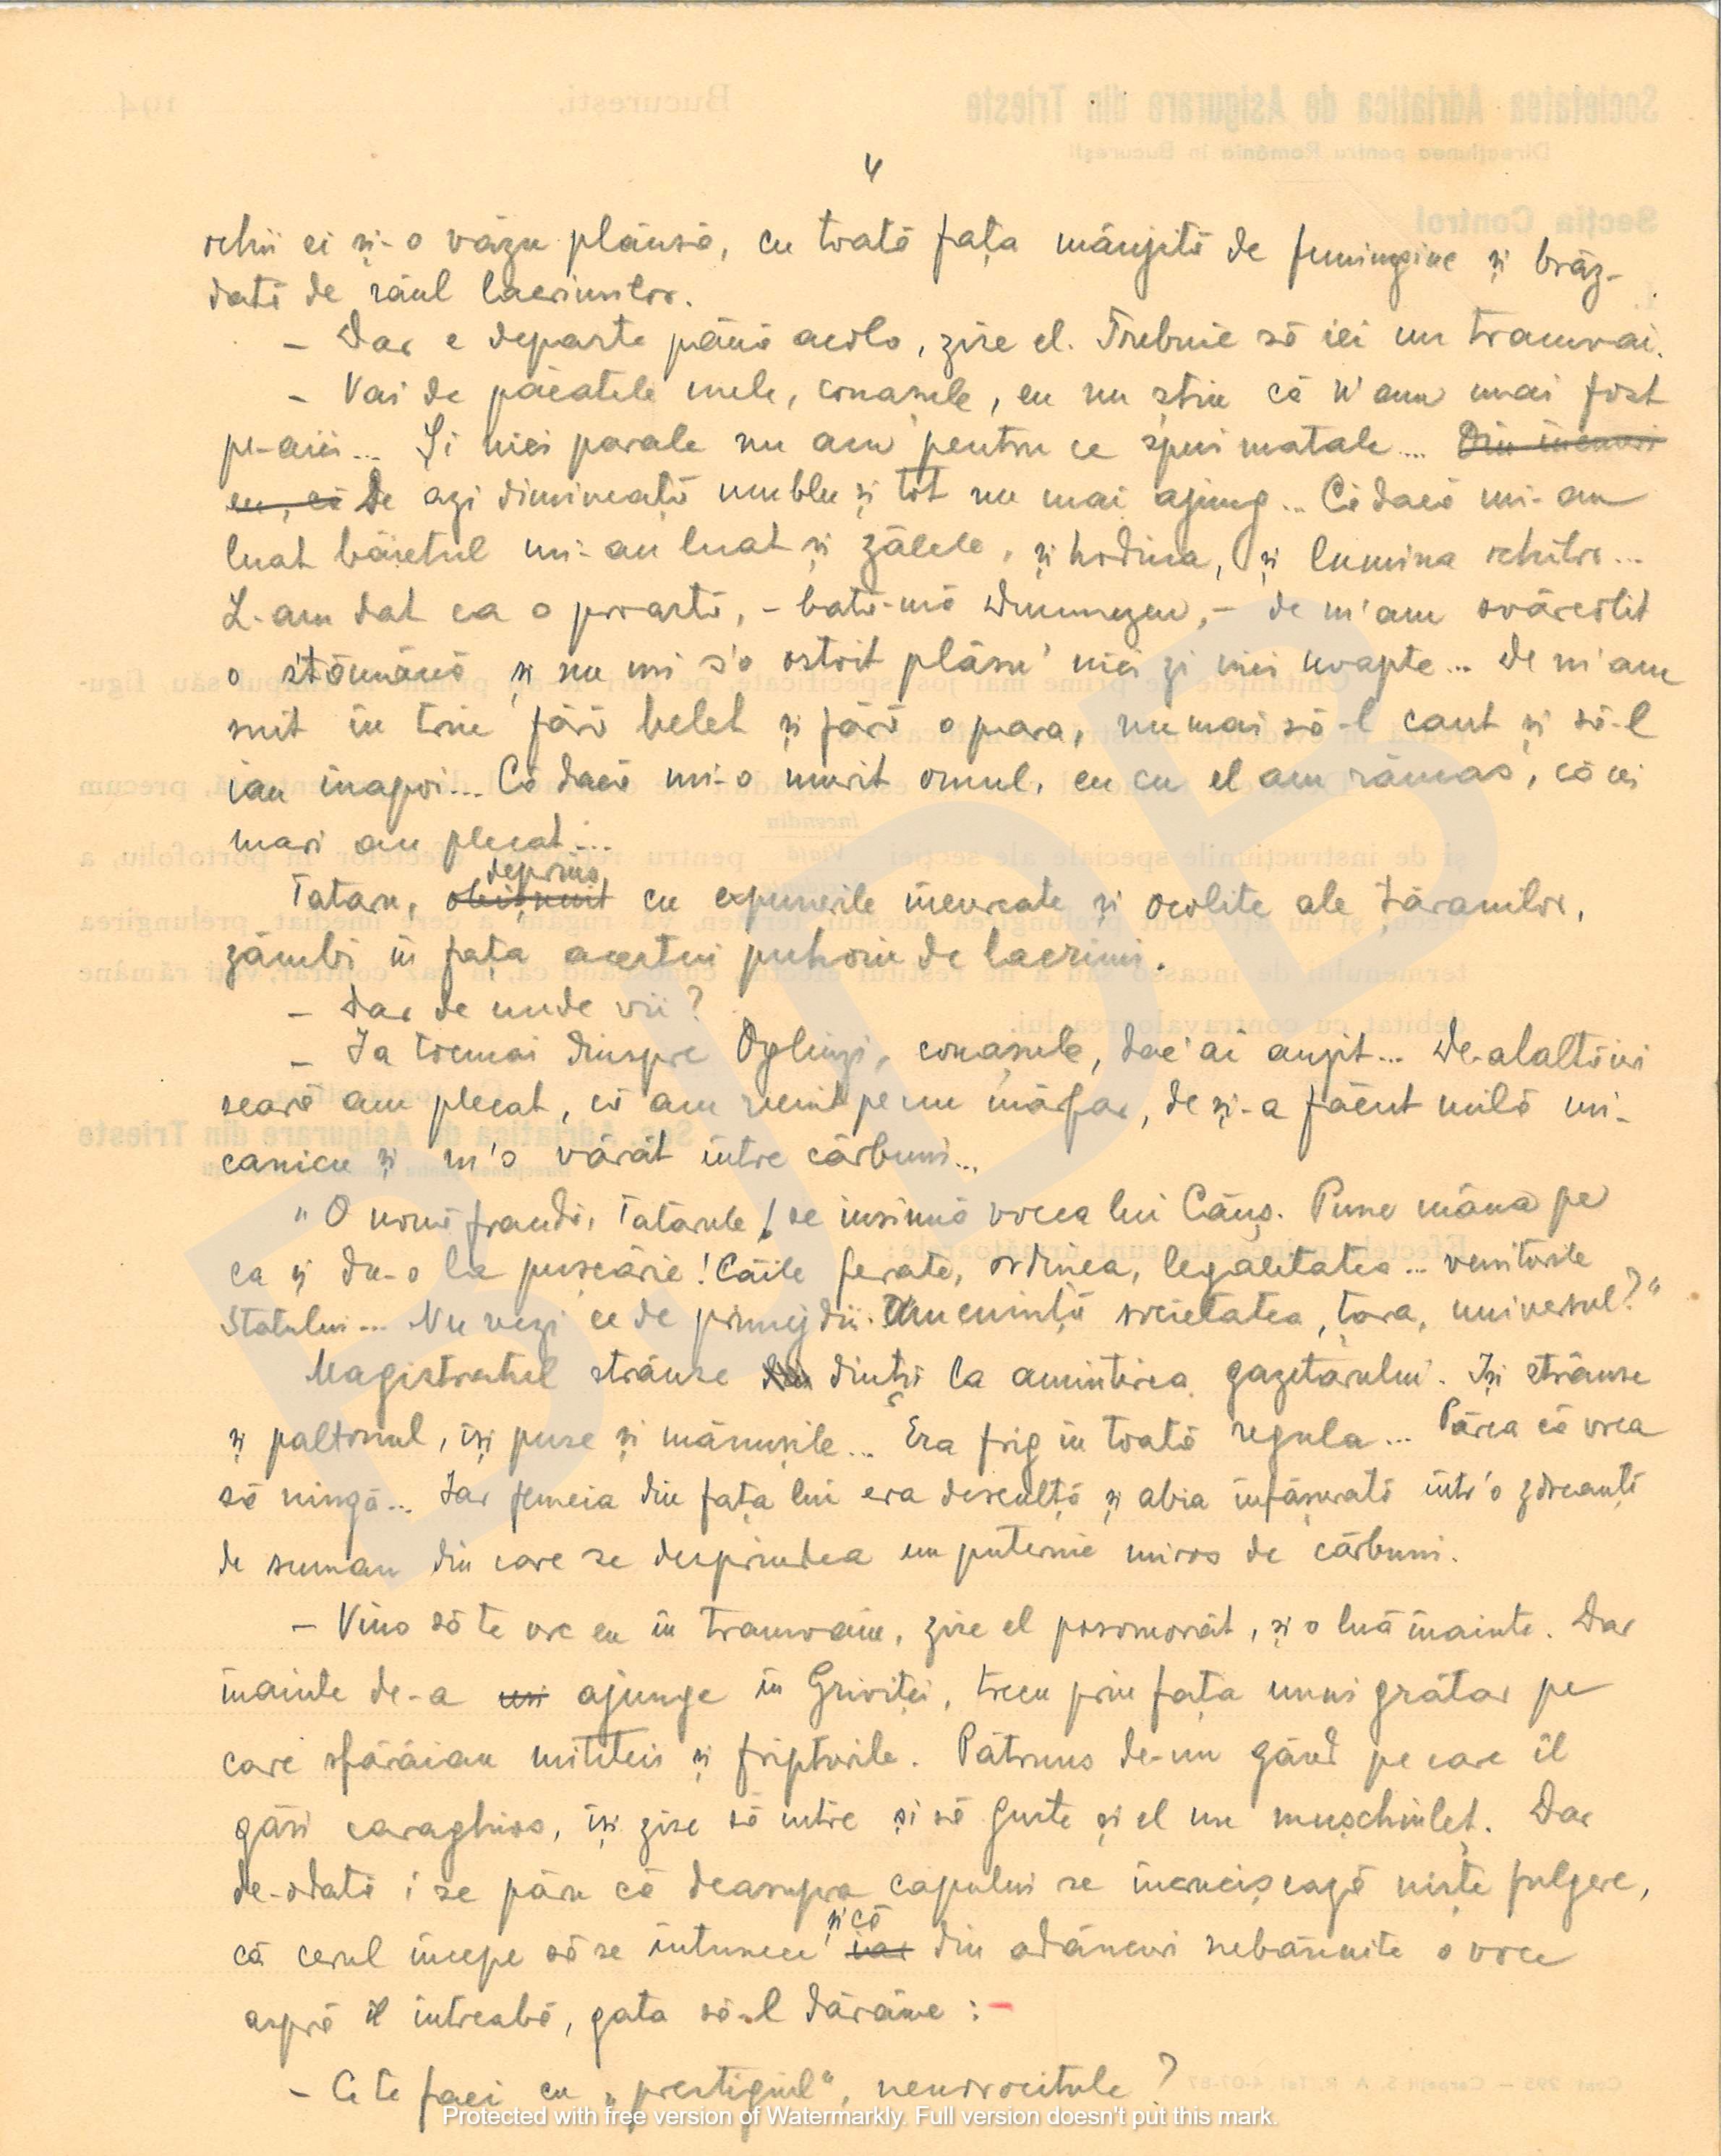 4
ochii ei și-o văzu plânsă, cu toată fața mânjită de funingine și brăz-
dată de râul lacrimilor.
– Dar e departe până acolo, zise el. Trebuie să iei un tramvai.
– Vai de păcatele mele, conașule, eu nu știu că n'am mai fost
pe-aici... Și nici parale nu am pentru ce spui matale... Din
eu, că De azi dimineață umblu și tot nu mai ajung... Că dacă mi-au
luat băietul mi-au luat și zâlele, și hodina, și lumina ochilor...
L-am dat ca o proastă, – bată-mă Dumnezeu, – de m'am svârcolit
o stămână și nu mi s'o ostoit plânsu' nici zi nici noapte... De m'am
suit în trin fără belet și fără o para, numai să-l caut și să-l
iau înapoi... Că dacă mi-o murit omul, eu cu el am rămas, că cei
mari au plecat...
deprins
Tataru, obișnuit cu expunerile încurcate și ocolite ale țăranilor,
zâmbi în fața acestui puhoiu de lacrimi.
– Dar de unde vii?
– Ia tocmai dinspre Oglinzi, conașule, dac'ai auzit... De-alaltăieri
seară am plecat, că am venit pe un mărfar, de și-a făcut milă mi-
canicu și m'o vârât între cărbuni...
„O nouă fraudă, Tatarule! se insinuă vocea lui Cânș. Pune mâna pe
ea și du-o la pușcărie! Căile ferate, ordinea, legalitatea... veniturile
Statului... Nu vezi ce de primejdii. Amenință societatea, țara, universul?"
Magistratul strânse din dinți la amintirea gazetarului. Își strânse
și paltonul, își puse și mănușile... Era frig în toată regula... Părea că vrea
să ningă... Iar femeia din fața lui era desculță și abia înfășurată într'o zdreanță
de suman din care se desprindea un puternic miros de cărbuni.
– Vino să te urc eu în tramvaiu, zise el posomorât, și o luă înainte. Dar
înainte de-a ajunge în Griviței, trecu prin fața unui grătar pe
care sfârâiau mititeii și fripturile. Pătruns de-un gând pe care îl
găsi caraghios, își zise să intre și să guste și el un mușchiuleț. Dar
de-odată i se păru că deasupra capului se încrucișează niște fulgere,
și că
că cerul începe să se întunece iar din adâncuri nebănuite o voce
aspră îl întreabă, gata să-l dărâme :-
– Ce te faci cu „prestigiul", nenorocitule?
BJDB
Protected with free version of Watermarkly. Full version doesn't put this mark.
Societatea Adriatica de Asigurare din Trieste
București,
194
Direcțiunea pentru România în București
Secția Control